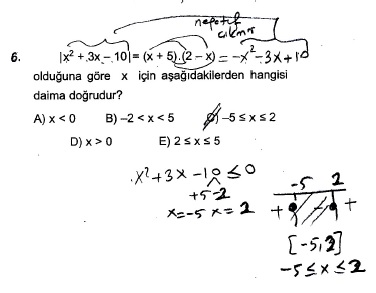 negatif
çıkmış
6. |x² + 3x – 10| = (x + 5).(2 – x) = -x² - 3x + 10
olduğuna göre x için aşağıdakilerden hangisi
daima doğrudur?
A) x < 0 B) –2 < x < 5 C) –5 ≤ x ≤ 2
D) x > 0 E) 2 ≤ x ≤ 5
x² + 3x - 10 ≤ 0
+5 -2
x = -5 x = 2
-5 2
+ - +
[-5, 2]
-5 ≤ x ≤ 2